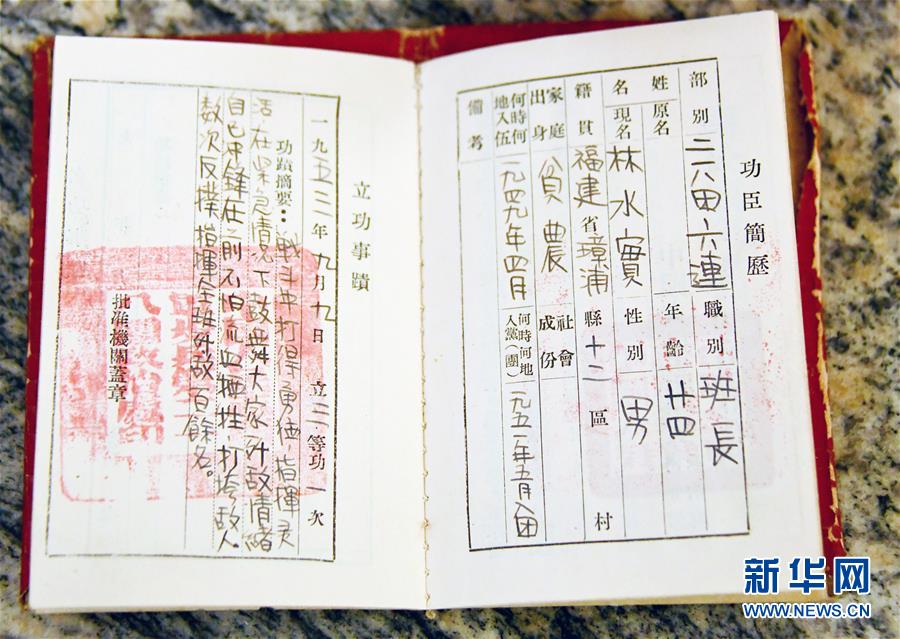 功臣簡歷
部別 六連 職別 班長
姓名 原名 年齡 廿四
現名 林水實 性別 男
籍貫 福建省璋浦縣十二區 村
家庭出身 貧農 社會成份
何時何地入伍 一九四九年四月 何時何地入黨(團) 一九五一年五月入团
備考
立功事蹟
一九五三年九月九日 立三等功一次
功蹟摘要：战斗中打得勇猛 指揮灵
活在紧急情况下鼓舞大家歼敌情绪
自己冲鋒在前不怕流血牺牲，打垮敌人
数次反撲指揮全班歼敌百餘名。
批准機關蓋章
新华网
WWW.NEWS.CN